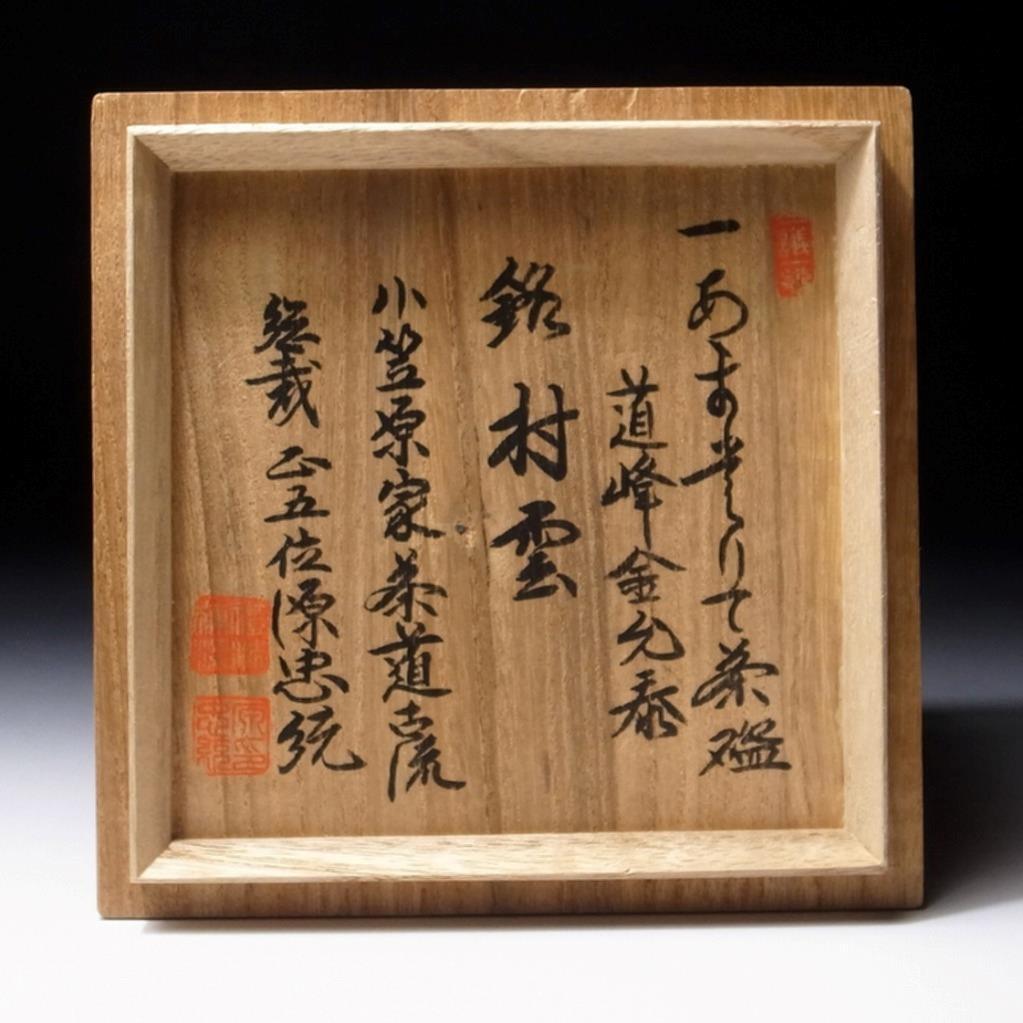 一 あまもりて茶盌
道峰金允泰
銘 村雲
小笠原家茶道古流
総裁 正五位源忠統